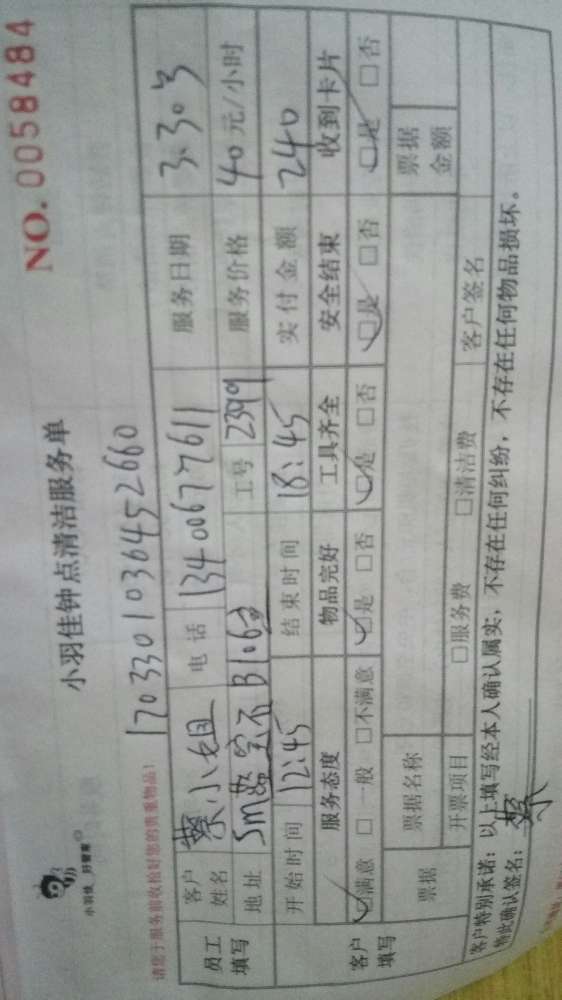 NO. 0058484
小羽佳 好管家
小羽佳钟点清洁服务单
请您于服务前收拾好您的贵重物品！
1703301036452660
员工填写 客户姓名 蔡小姐 电话 13400677611 服务日期 3.30号
地址 工号 2399 服务价格 40元/小时
客户填写 开始时间 12:45 结束时间 18:45 实付金额 240
服务态度 物品完好 工具齐全 安全结束 收到卡片
☑满意 □一般 □不满意 ☑是 □否 ☑是 □否 ☑是 □否 ☑是 □否
票据 票据名称 票据金额
开票项目 □服务费 □清洁费 客户签名
客户特别承诺：以上填写经本人确认属实，不存在任何纠纷，不存在任何物品损坏。
特此确认签名：蔡